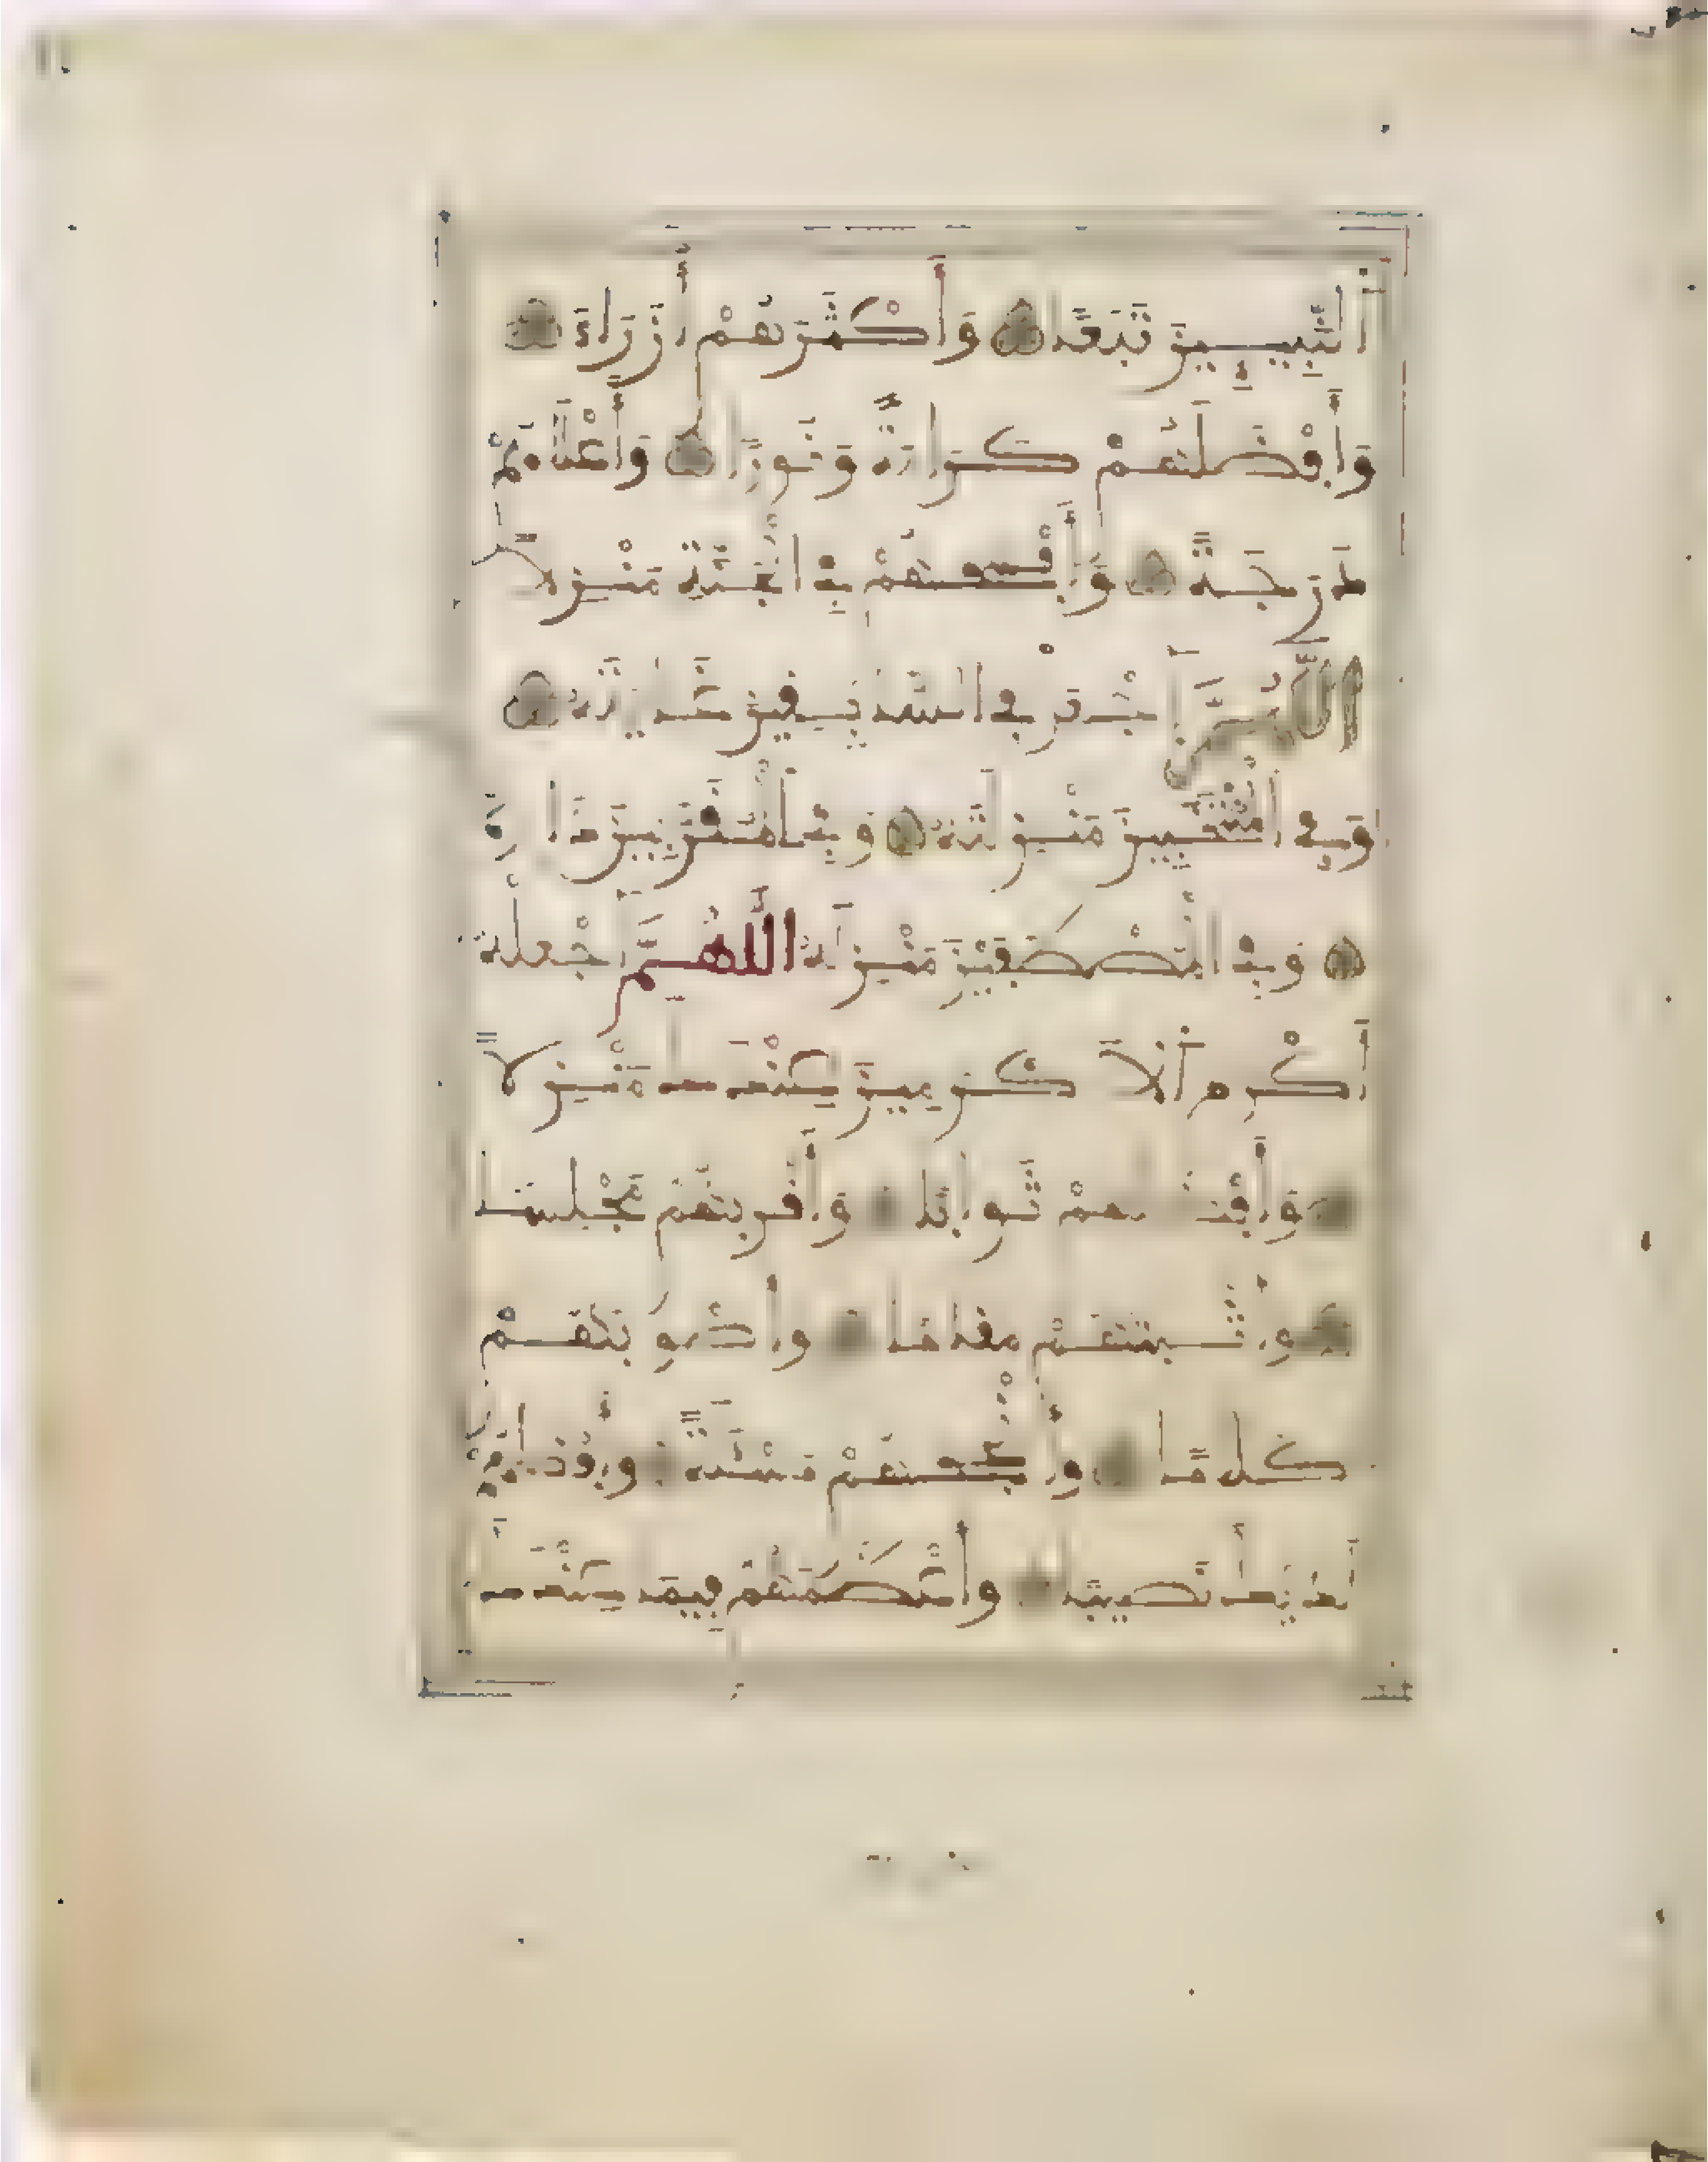 النَّبِيـِٕينَ تَبَعًا وَأَكْثَرَهُمْ أُزَرَاءَ
وَأَفْضَلَهُمْ كَرَامَةً وَنُورًا وَأَعْلَاهُمْ
دَرَجَةً وَأَفْسَحَهُمْ فِي الْجَنَّةِ مَنْزِلًا
اللَّهُمَّ اجْعَلْ فِي السَّابِقِينَ غَايَتَهُ
وَفِي الْمُنْتَخَبِينَ مَنْزِلَتَهُ وَفِي الْمُقَرَّبِينَ دَارَهُ
وَفِي الْمُصْطَفَيْنَ مَنْزِلَهُ اللَّهُمَّ اجْعَلْهُ
أَكْرَمَ الْأَكْرَمِينَ عِنْدَكَ مَنْزِلًا
وَأَفْضَلَهُمْ ثَوَابًا وَأَقْرَبَهُمْ مَجْلِسًا
وَأَثْبَتَهُمْ مَقَامًا وَأَصْوَبَهُمْ
كَلَامًا وَأَنْجَحَهُمْ مَسْأَلَةً وَأَفْضَلَهُمْ
لَدَيْكَ نَصِيبًا وَأَعْظَمَهُمْ فِيمَا عِنْدَكَ